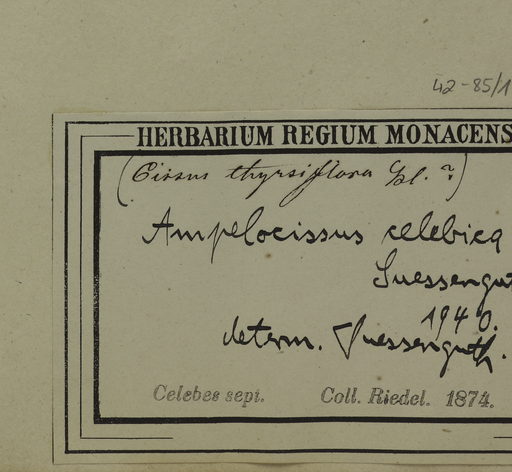 42-85/1
HERBARIUM REGIUM MONACENS
(Cissus thyrsiflora Bl. ?)
Ampelocissus celebica
Suessengut
1940.
determ. Suessenguth.
Celebes sept. Coll. Riedel. 1874.